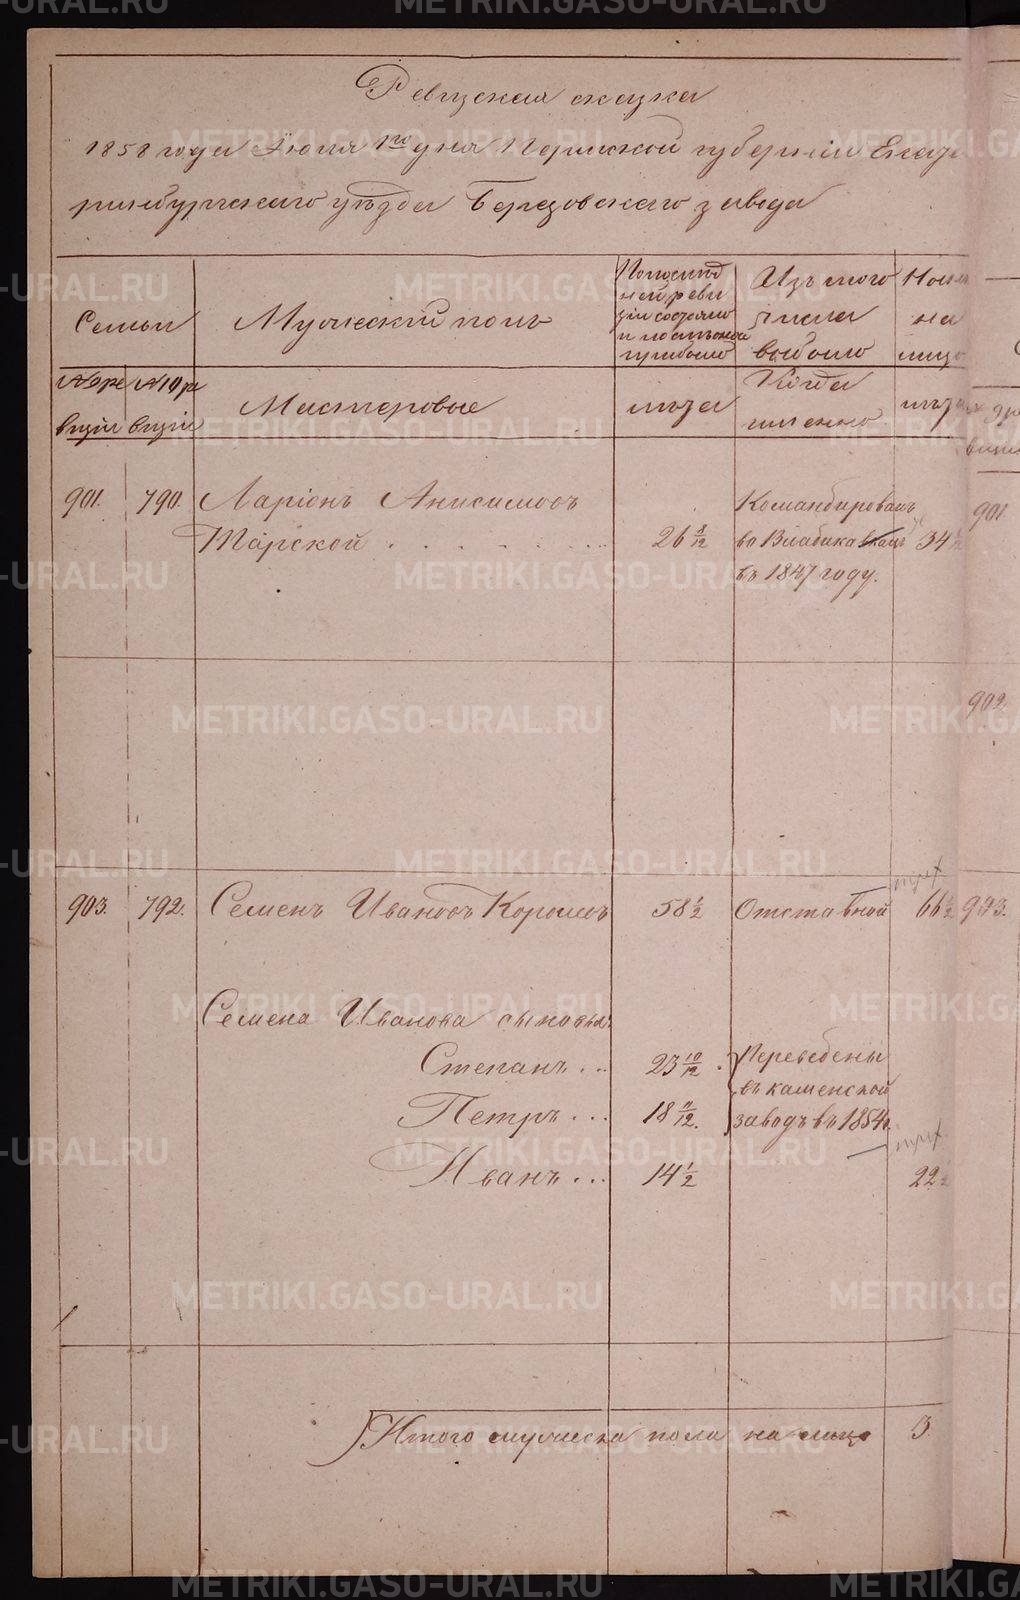 Ревизская сказка
1858 года Июля 1го дня Пермской губерніи Екате
ринбургскаго уѣзда Березовскаго завода
Семьи
Мужескій полъ
По послѣд
ней реви
зіи состояло
и послѣ оной
прибыло
Изъ того
числа
выбыло
Ныне
на
лицо
№ 9 ре
визіи
№ 10 ре
визіи
Мастеровые
лѣта
Когда
именно
лѣта
901. 790. Ларіонъ Анисимовъ
Тарской 26 8/12
Командированъ
во Владикавказъ 34
въ 1847 году.
901
902
903. 792. Семенъ Ивановъ 58 1/2 Отставной 66 1/2 903.
Семена Иванова сыновья
Степанъ 23 10/12
Петръ 18 11/12.
Переведены
въ каменской
заводъ въ 1854
Иванъ 14 1/2 22
Итого мужеска пола на лицо 3
METRIKI.GASO-URAL.RU